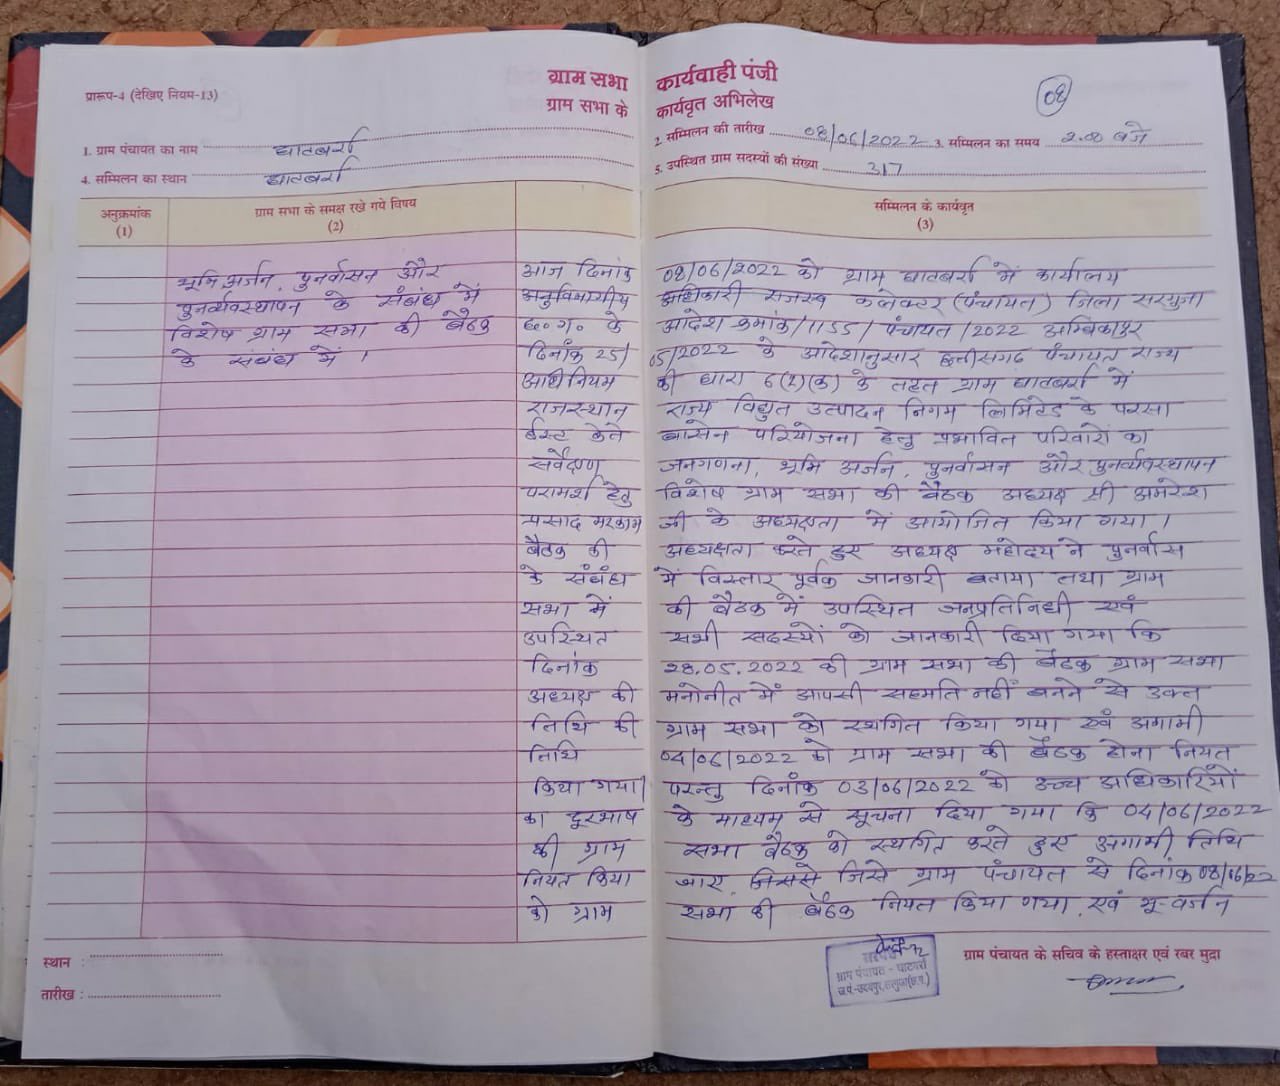 ग्राम सभा कार्यवाही पंजी
प्रारूप-4 (देखिए नियम-13)
ग्राम सभा के कार्यवृत अभिलेख
08
1. ग्राम पंचायत का नाम घाटबर्रा 2. सम्मिलन की तारीख 08/06/2022 3. सम्मिलन का समय 2.00 बजे
4. सम्मिलन का स्थान घाटबर्रा 5. उपस्थित ग्राम सदस्यों की संख्या 317
अनुक्रमांक ग्राम सभा के समक्ष रखे गये विषय सम्मिलन के कार्यवृत
(1) (2) (3)
भूमि अर्जन, पुनर्वासन और
पुनर्व्यवस्थापन के संबंध में
विशेष ग्राम सभा की बैठक
के संबंध में ।
आज दिनांक 08/06/2022 को ग्राम घाटबर्रा में कार्यालय
अनुविभागीय अधिकारी राजस्व कलेक्टर (पंचायत) जिला सरगुजा
छ०ग० के आदेश क्रमांक/1155/पंचायत/2022 अम्बिकापुर
दिनांक 25/05/2022 के आदेशानुसार छत्तीसगढ़ पंचायत राज्य
अधिनियम की धारा 6(2)(क) के तहत ग्राम घाटबर्रा में
राजस्थान राज्य विद्युत उत्पादन निगम लिमिटेड के परसा
ईस्ट केते बासेन परियोजना हेतु प्रभावित परिवारों का
सर्वेक्षण जनगणना, भूमि अर्जन, पुनर्वासन और पुनर्व्यवस्थापन
परामर्श हेतु विशेष ग्राम सभा की बैठक अध्यक्ष श्री अमरेश
प्रसाद मरकाम जी के अध्यक्षता में आयोजित किया गया ।
बैठक की अध्यक्षता करते हुए अध्यक्ष महोदय ने पुनर्वास
के संबंध में विस्तार पूर्वक जानकारी बताया तथा ग्राम
सभा में की बैठक में उपस्थित जनप्रतिनिधी एवं
उपस्थित सभी सदस्यों को जानकारी दिया गया कि
दिनांक 28.05.2022 की ग्राम सभा की बैठक ग्राम सभा
अध्यक्ष की मनोनीत में आपसी सहमति नहीं बनने से उक्त
तिथि की ग्राम सभा को स्थगित किया गया एवं अगामी
तिथि 04/06/2022 को ग्राम सभा की बैठक होना नियत
किया गया। परन्तु दिनांक 03/06/2022 को उच्च अधिकारियों
का दूरभाष के माध्यम से सूचना दिया गया कि 04/06/2022
की ग्राम सभा बैठक को स्थगित करते हुए अगामी तिथि
नियत किया जाए, जिससे जिसे ग्राम पंचायत से दिनांक 08/06/22
को ग्राम सभा की बैठक नियत किया गया, एवं भू-वर्जन
स्थान :
तारीख :
ग्राम पंचायत - घाटबर्रा
ज.पं.-उदयपुर, सरगुजा (छ.ग.)
ग्राम पंचायत के सचिव के हस्ताक्षर एवं रबर मुद्रा